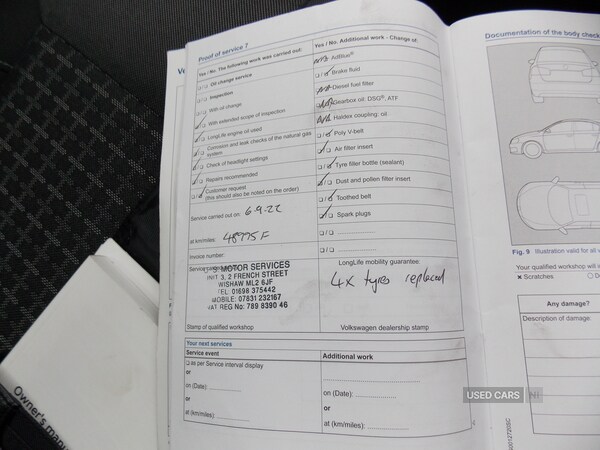 Proof of service 7
Yes / No: The following work was carried out:
Oil change service
Inspection
With oil change
With extended scope of inspection
LongLife engine oil used
Corrosion and leak checks of the natural gas
system
Check of headlight settings
Repairs recommended
Customer request
(this should also be noted on the order)
Service carried out on: 6.9.22
at km/miles: 48975 F
Invoice number:
MOTOR SERVICES
UNIT 3, 2 FRENCH STREET
WISHAW ML2 6JF
TEL: 01698 375442
MOBILE: 07831 232167
VAT REG No: 789 8390 46
Stamp of qualified workshop
Yes / No. Additional work - Change of:
N/A AdBlue®
Brake fluid
N/A Diesel fuel filter
Gearbox oil: DSG®, ATF
N/A Haldex coupling: oil
Poly V-belt
Air filter insert
Tyre filler bottle (sealant)
Dust and pollen filter insert
Toothed belt
Spark plugs
LongLife mobility guarantee:
4x tyres replaced
Volkswagen dealership stamp
Your next services
Service event
as per Service interval display
or
on (Date):
or
at (km/miles):
Additional work
on (Date):
or
at (km/miles):
Documentation of the body check
Fig. 9 Illustration valid for all v
Your qualified workshop will i
x Scratches
Any damage?
Description of damage:
Owner's manu
USED CARS NI